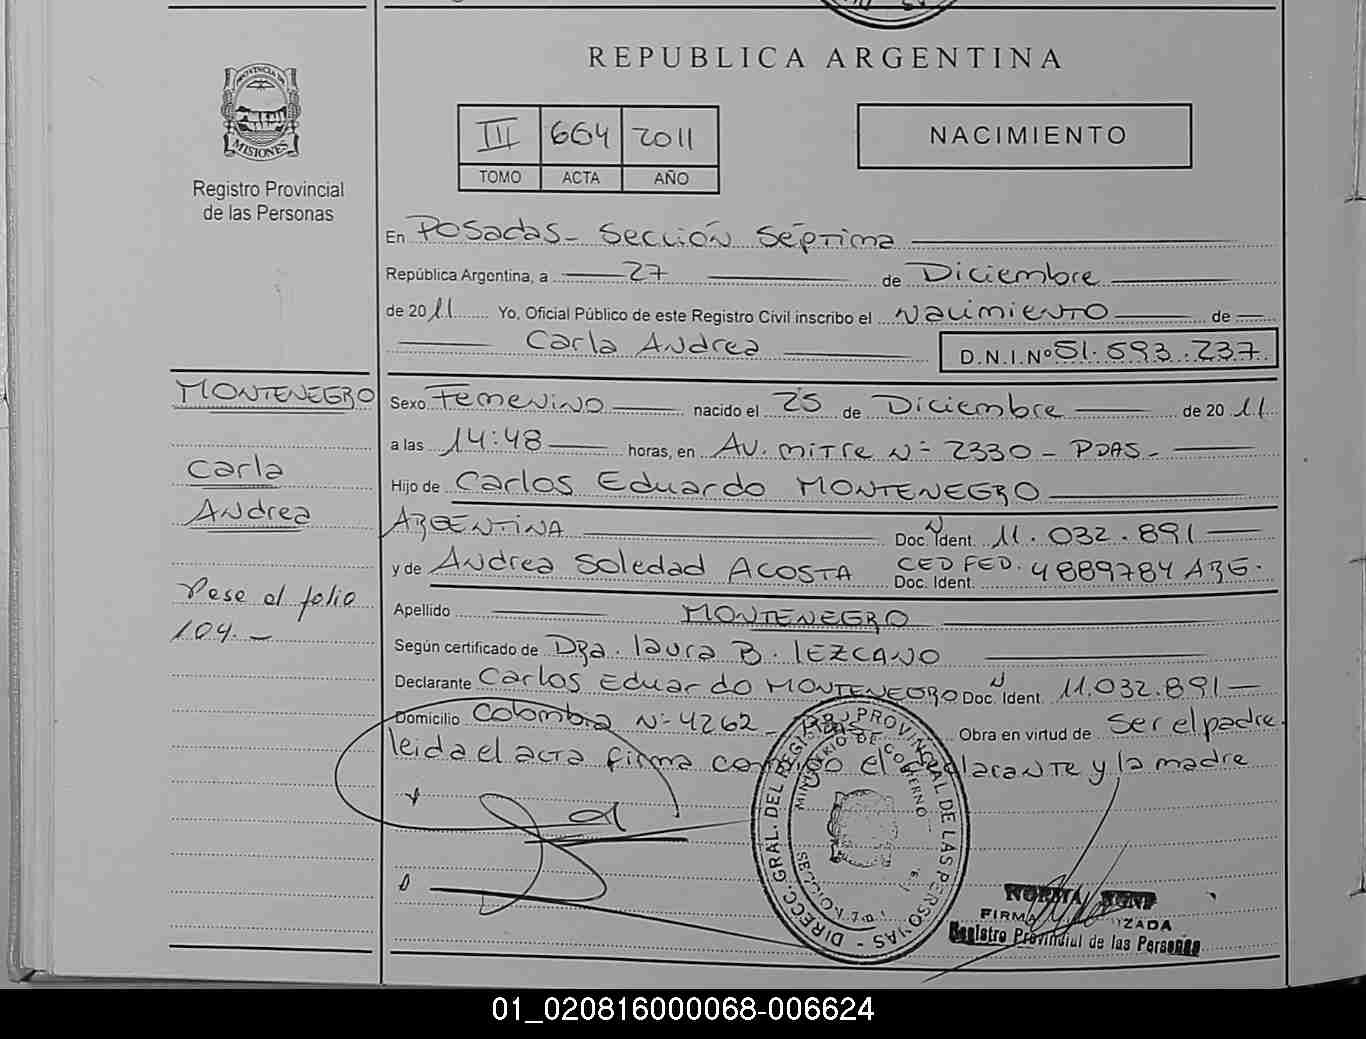 REPUBLICA ARGENTINA
PROVINCIA DE
MISIONES
Registro Provincial
de las Personas
III 664 2011
TOMO ACTA AÑO
NACIMIENTO
En Posadas - Sección Séptima
República Argentina, a 27 de Diciembre
de 2011 Yo, Oficial Público de este Registro Civil inscribo el Nacimiento de
Carla Andrea D.N.I.Nº 51.593.237
MONTENEGRO
Carla
Andrea
Vese al folio
104.-
Sexo Femenino nacido el 25 de Diciembre de 2011
a las 14:48 horas, en AV. mitre N- 2330 - PDAS-
Hijo de Carlos Eduardo MONTENEGRO
ARGENTINA Doc. N Ident. 11.032.891
y de Andrea Soledad ACOSTA CED FED. Doc. Ident. 4889784 ARG.
Apellido MONTENEGRO
Según certificado de Dra. laura B. LEZCANO
Declarante Carlos Eduardo MONTENEGRO Doc. N Ident. 11.032.891
Domicilio Colombia N- 4262 - Obra en virtud de Ser el padre
leida el acta firma el y la madre
DIRECC. GRAL. DEL REGISTRO PROVINCIAL DE LAS PERSONAS -
MINISTERIO DE GOBIERNO
NORMA
FIRMA
Registro Provincial de las Personas
01_020816000068-006624